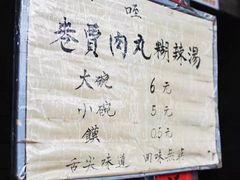 巷賣肉丸糊辣湯
大碗 6元
小碗 5元
饃 0.5元
舌尖味道 回味無窮